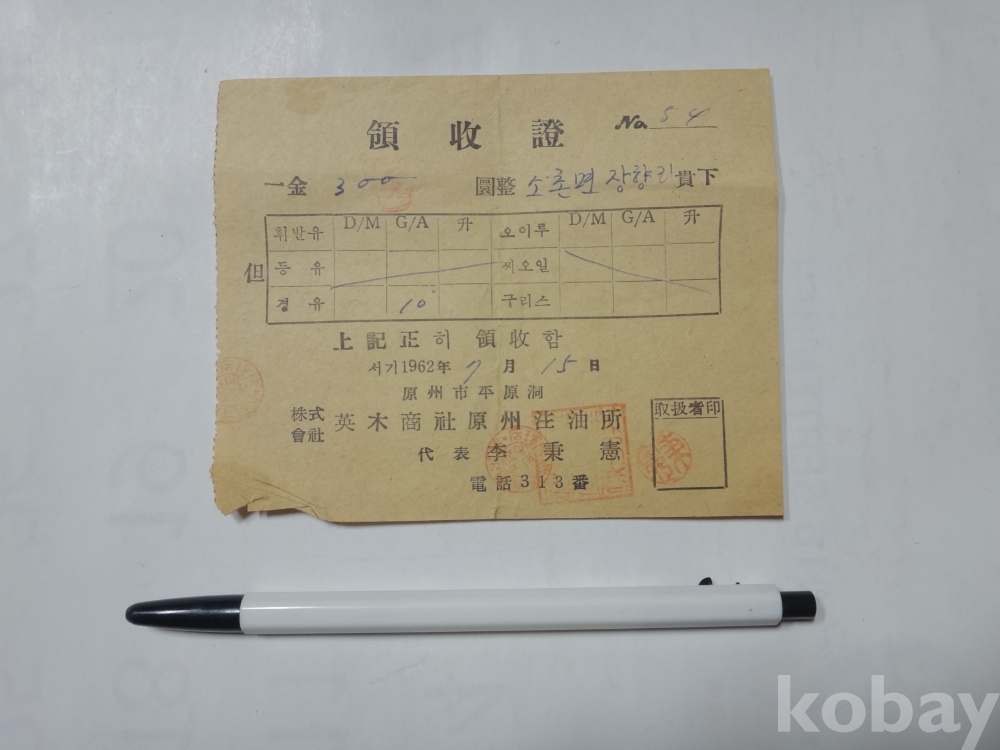 領收證 No 54
一金 300 圜整 소촌면 장향리 貴下
但
휘발유 D/M G/A 升 오이루 D/M G/A 升
등유 씨오일
경유 10 구리스
上記正히 領收함
서기1962年 7月 15日
原州市平原洞
株式會社 英木商社原州注油所
取扱者印
代表 李秉憲
電話 313番
kobay